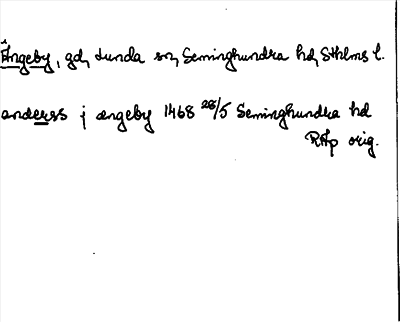 Ängeby, gd, Lunda sn, Seminghundra hd, Sthlms l.
anderss j ængeby 1468 28/5 Seminghundra hd
RAp orig.